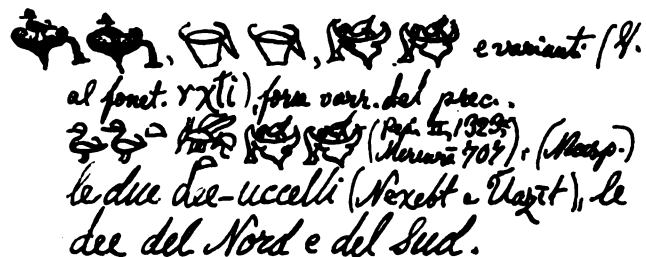 e varianti (V.
al fonet. rχti), forse varr. del prec.
(Pepi II, 1323; Merenrā 707). (Masp.)
le due dee-uccelli (Neχebt e Uazīt), le
dee del Nord e del Sud.